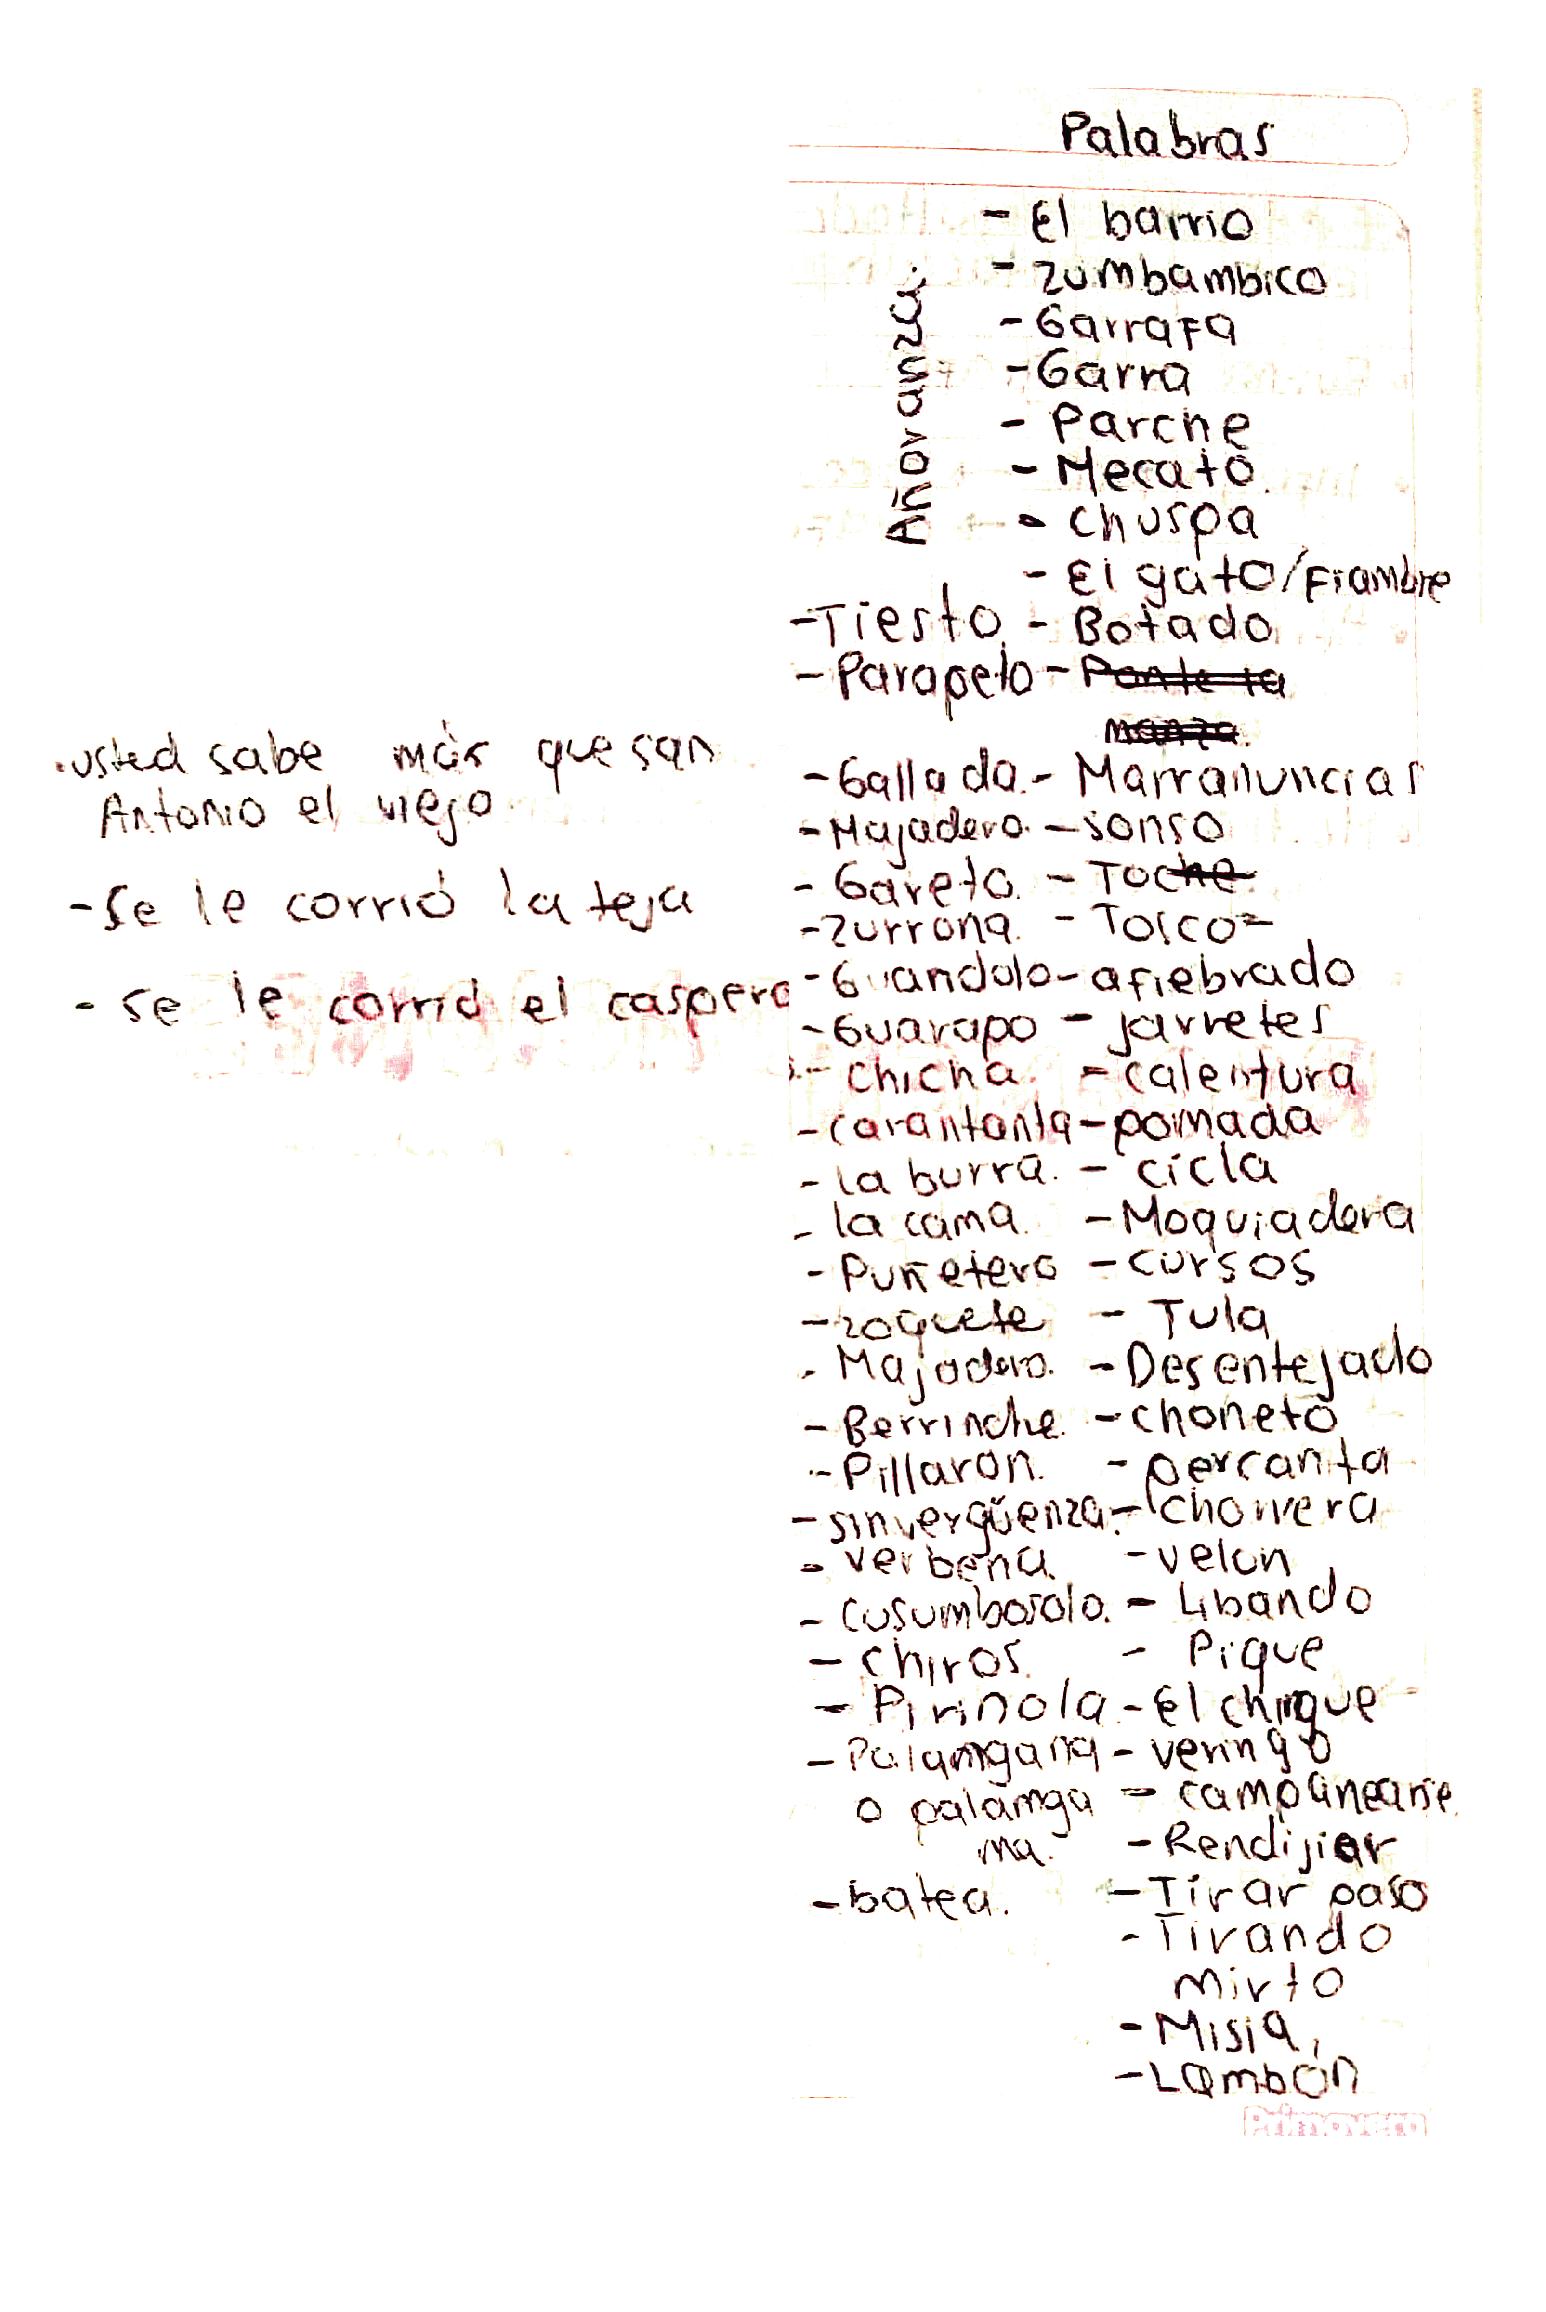 Palabras
- El barrio
- zumbambico
- Garrafa
- Garra
- Parche
- Mecato.
- chuspa
- El gato/Fiambre
Añovanza.
- Tiesto. - Botado
- Parapeto - Ponte la
manza.
- Gallada. - Marranuncias
- Majadero. - sonso
- Gareto. - Toche
- Zurrona. - Tosco
- Guandolo - afiebrado
- Guarapo - jarretes
- chicha. - calentura
- carantanta - pomada
- La burra. - cicla
- la cama. - Moquiadera
- Puñetero - cursos
- zoquete - Tula
- Majadero. - Desentejado
- Berrinche. - choneto
- Pillaron. - percanta
- sinvergüenza. - chorrera
- verbena. - velon
- cusumbosolo. - Libando
- chiros. - Pique
- Pirinola - El chingue
- Palamgana - veringo
o palamga - campanearse.
ma. - Rendijiar
- batea. - Tirar paso
- Tirando
mirto
- Misia,
- Lambón
Primavera
. usted sabe más que san
Antonio el viejo.
- se le corrió la teja
- se le corrió el caspero